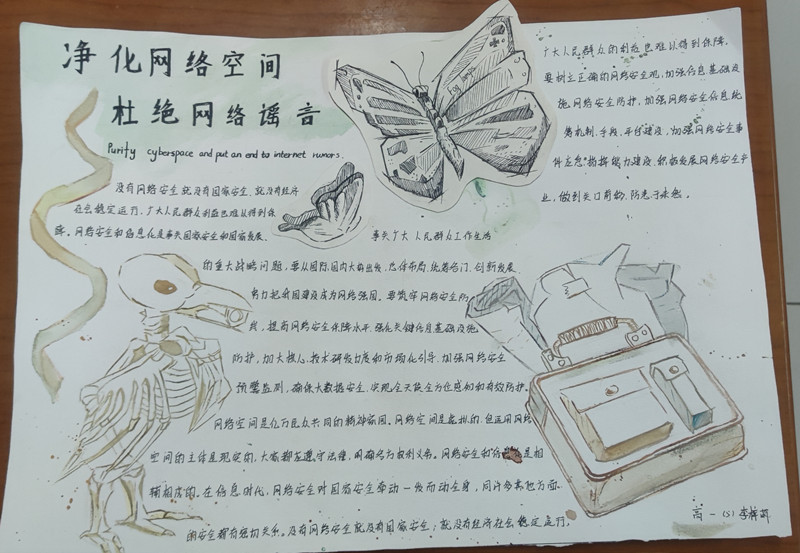 净化网络空间
杜绝网络谣言
Purity cyberspace and put an end to internet rumors.
没有网络安全就没有国家安全,就没有经济
社会稳定运行,广大人民群众利益也难以得到保
障。网络安全和信息化是事关国家安全和国家发展、
事关广大人民群众工作生活
的重大战略问题,要从国际国内大势出发,总体布局,统筹各方,创新发展
努力把我国建设成为网络强国。要筑牢网络安全防
线,提高网络安全保障水平,强化关键信息基础设施
防护,加大核心技术研发力度和市场化引导,加强网络安全
预警监测,确保大数据安全,实现全天候全方位感知和有效防护。
网络空间是亿万民众共同的精神家园。网络空间是虚拟的,但运用网络
空间的主体是现实的,大家都应遵守法律,明确各方权利义务。网络安全和
是相
辅相成的。在信息时代,网络安全对国家安全牵动一发而动全身,同许多其他方面
的安全都有密切关系。没有网络安全就没有国家安全;就没有经济社会稳定运行,
广大人民群众的利益也难以得到保障。
要树立正确的网络安全观,加强信息基础设
施网络安全防护,加强网络安全信息统
筹机制、手段、平台建设,加强网络安全事
件应急指挥能力建设,积极发展网络安全产
业,做到关口前移,防患于未然。
高一(5)李